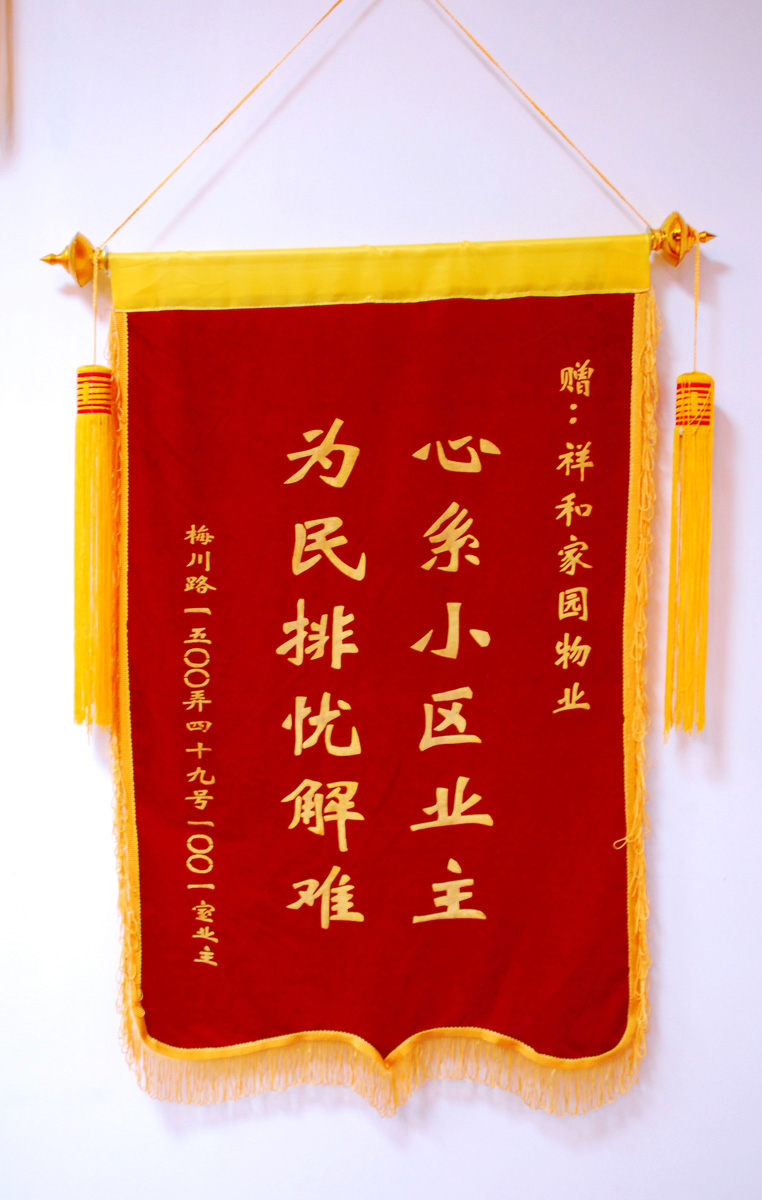 赠：祥和家园物业
心系小区业主
为民排忧解难
梅川路一五〇〇弄四十九号一〇〇一室业主